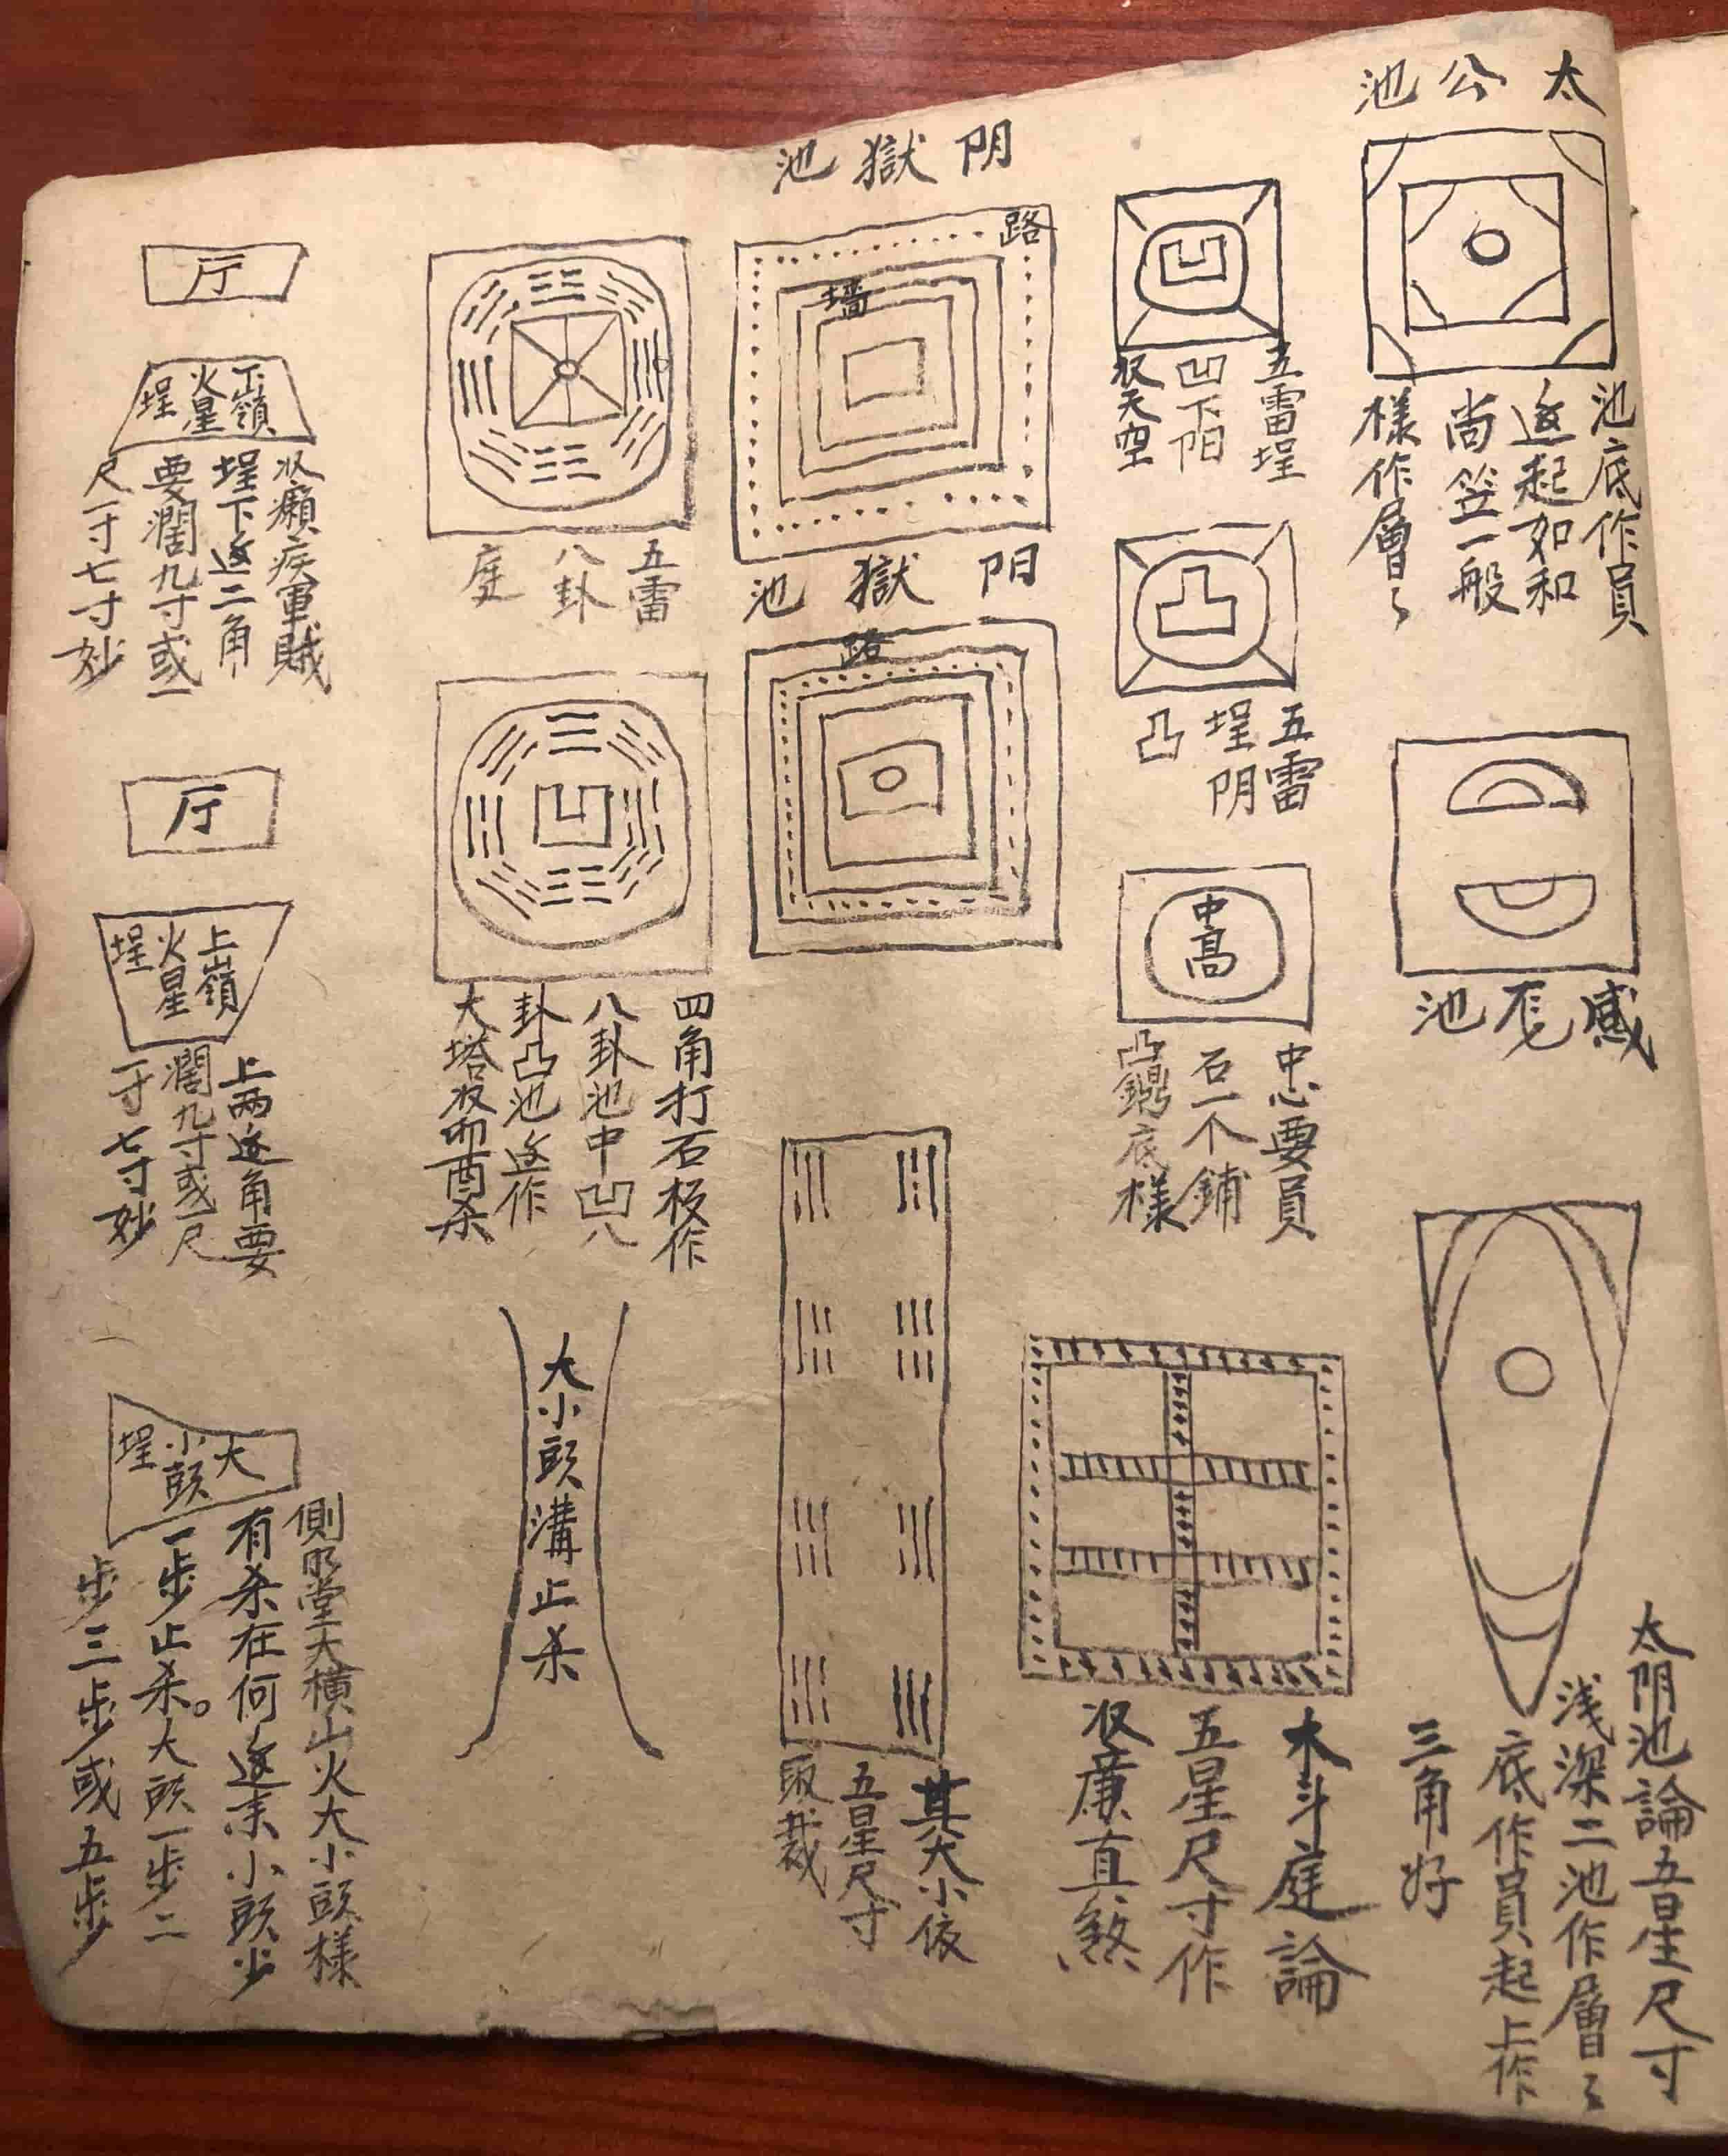 太公池
池底作員
返起如和
尚笠一般
樣作層々
感死池
太阴池論五星尺寸
浅深二池作層々
底作員起上作
三角好
五雷埕
凹下阳
收天空
五雷
埕阴
凸
中高
中心要員
石一个鋪
凸鍋底樣
木斗庭論
五星尺寸作
收廉直煞
阴獄池
路
墙
阴獄池
路
其大小依
五星尺寸
取裁
五雷
八卦
庭
四角打石板作
八卦池中凹八
卦凸池返作
大塔收卯酉杀
大小頭溝止杀
厅
下嶺
火星
埕
收癩疾軍賊
埕下返二角
要濶九寸或一
尺一寸七寸妙
厅
上嶺
火星
埕
上两返角要
濶九寸或一尺
一寸七寸妙
大
小頭
埕
側明堂天橫山火大小頭樣
有杀在何返來小頭步
一步止杀。大頭一步二
步三步或五步